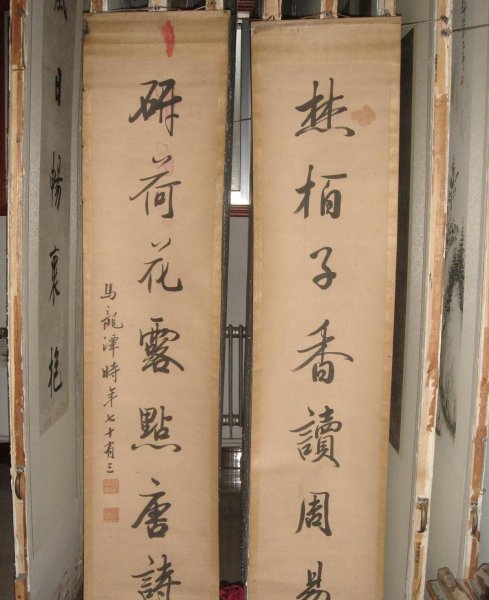 焚柏子香讀周易
研荷花露點唐詩
馬龍潭時年七十有三
風日暢褱抱